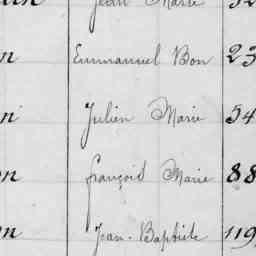 Jean Marie 52
n Emmanuel Bon 23
n Julien Marie 54
on françois Marie 88
on Jean-Baptiste 119